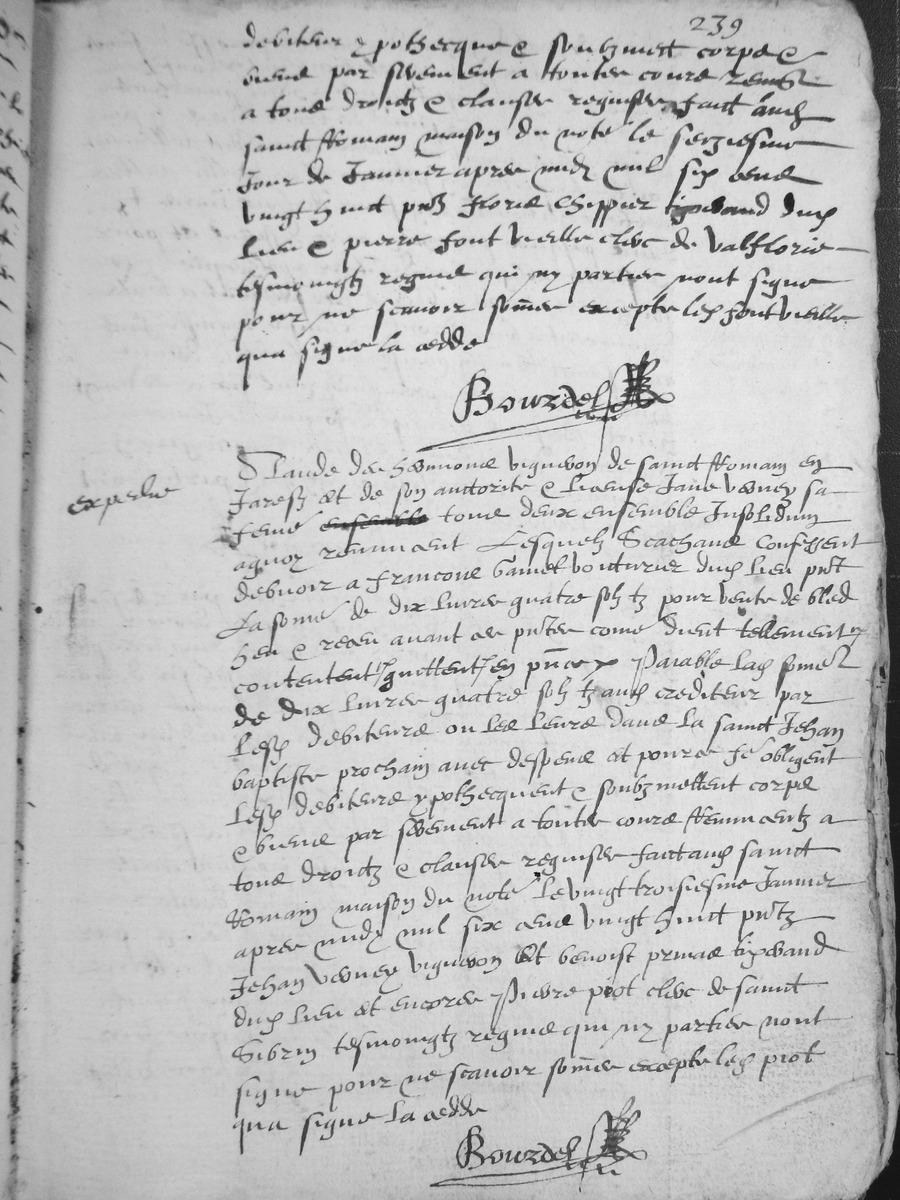 239
debiteur ypothecque & soubzmect corps &
biens par serement a toutes cours renu͠ce
a tous droictz & clauses requises faict aud
sainct Romain maison du note le seiziesme
Jour de Janvier apres midy mil six cens
vingt huict p͠ntz Floris Chippier tixerand dud
lieu & pierre fontvieille clerc de valflorie
tesmoingtz requis qui ny parties nont signe
pour ne scavoir som͠es excepte led fontvieille
qua signe la cedde
Bourdel
expedie
Claude vigneron de sainct Romain en
Jarestz et de son auctorite & license Jane verney sa
feme ensemble tous deux ensemble Insolidum
aquoy renuncent Lesquelz Scachans confessent
debvoir a francois Gamet voicturier dud lieu p͠nt
La some de dix livres quatre solz tz pour vente de bled
heu & receu avant ces p͠ntes come dient tellement q
contentent quittent en p͠nce Paiable lad some
de dix livres quatre solz tz aud crediteur par
lesd debiteurs ou les leurs dans la sainct Jehan
baptiste prochain avec despens et pour ce se obligent
lesd debiteurs ypothecquent & soubzmettent corps
& biens par serement a toutes cours Renuncentz a
tous droictz & clauses requises faict aud sainct
Romain maison du note Le vingt troisiesme Janvier
apres midy mil six cens vingt huict p͠ntz
Jehan verney vigneron et benoist privas tixerand
dud lieu et encores Pierre piot clerc de sainct
Sibrin tesmoingtz requis qui ny parties nont
signe pour ne scavoir som͠es excepte led piot
qua signe la cedde
Bourdel